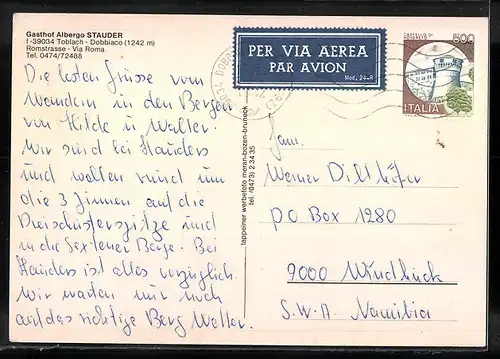 Gasthof Albergo STAUDER
I-39034 Toblach - Dobbiaco (1242 m)
Romstrasse - Via Roma
Tel. 0474/72488
Die besten Grüsse vom
Wandern in den Bergen
von Hilde u Walter.
Wir sind bei Stauders
und wollen rund um
die 3 Zinnen auf die
Dreischusterspitze und
in die Sextener Berge. Bei
Stauders ist alles vorzüglich.
Wir warten nur noch
auf das richtige Berg Wetter.
tappeiner werbefoto meran-bozen-bruneck
tel. (0473) 2 34 35
PER VIA AEREA
PAR AVION
Mod. 24-R
500
ITALIA
Fam.
Werner
PO Box 1280
9000 Windhuk
S.W.A. Namibia